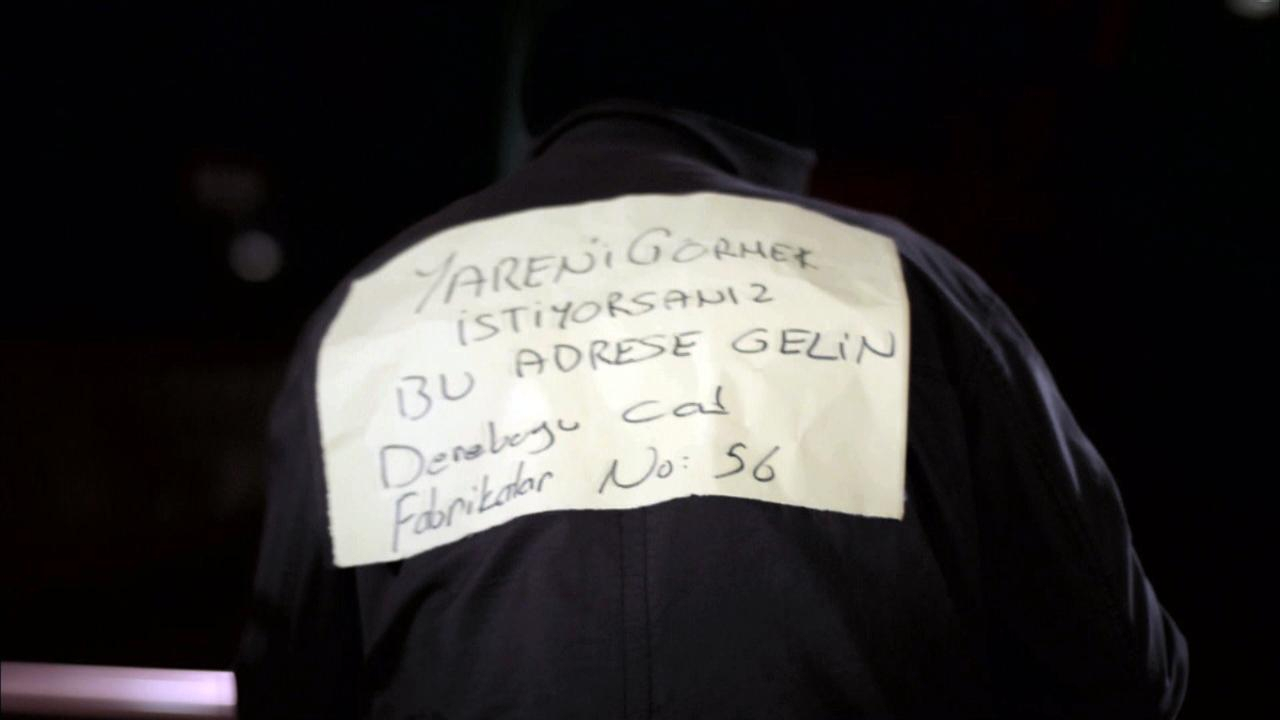 YARENi GÖRMEK
iSTiYORSANIZ
BU ADRESE GELiN
Dereboyu Cad
Fabrikalar No: 56